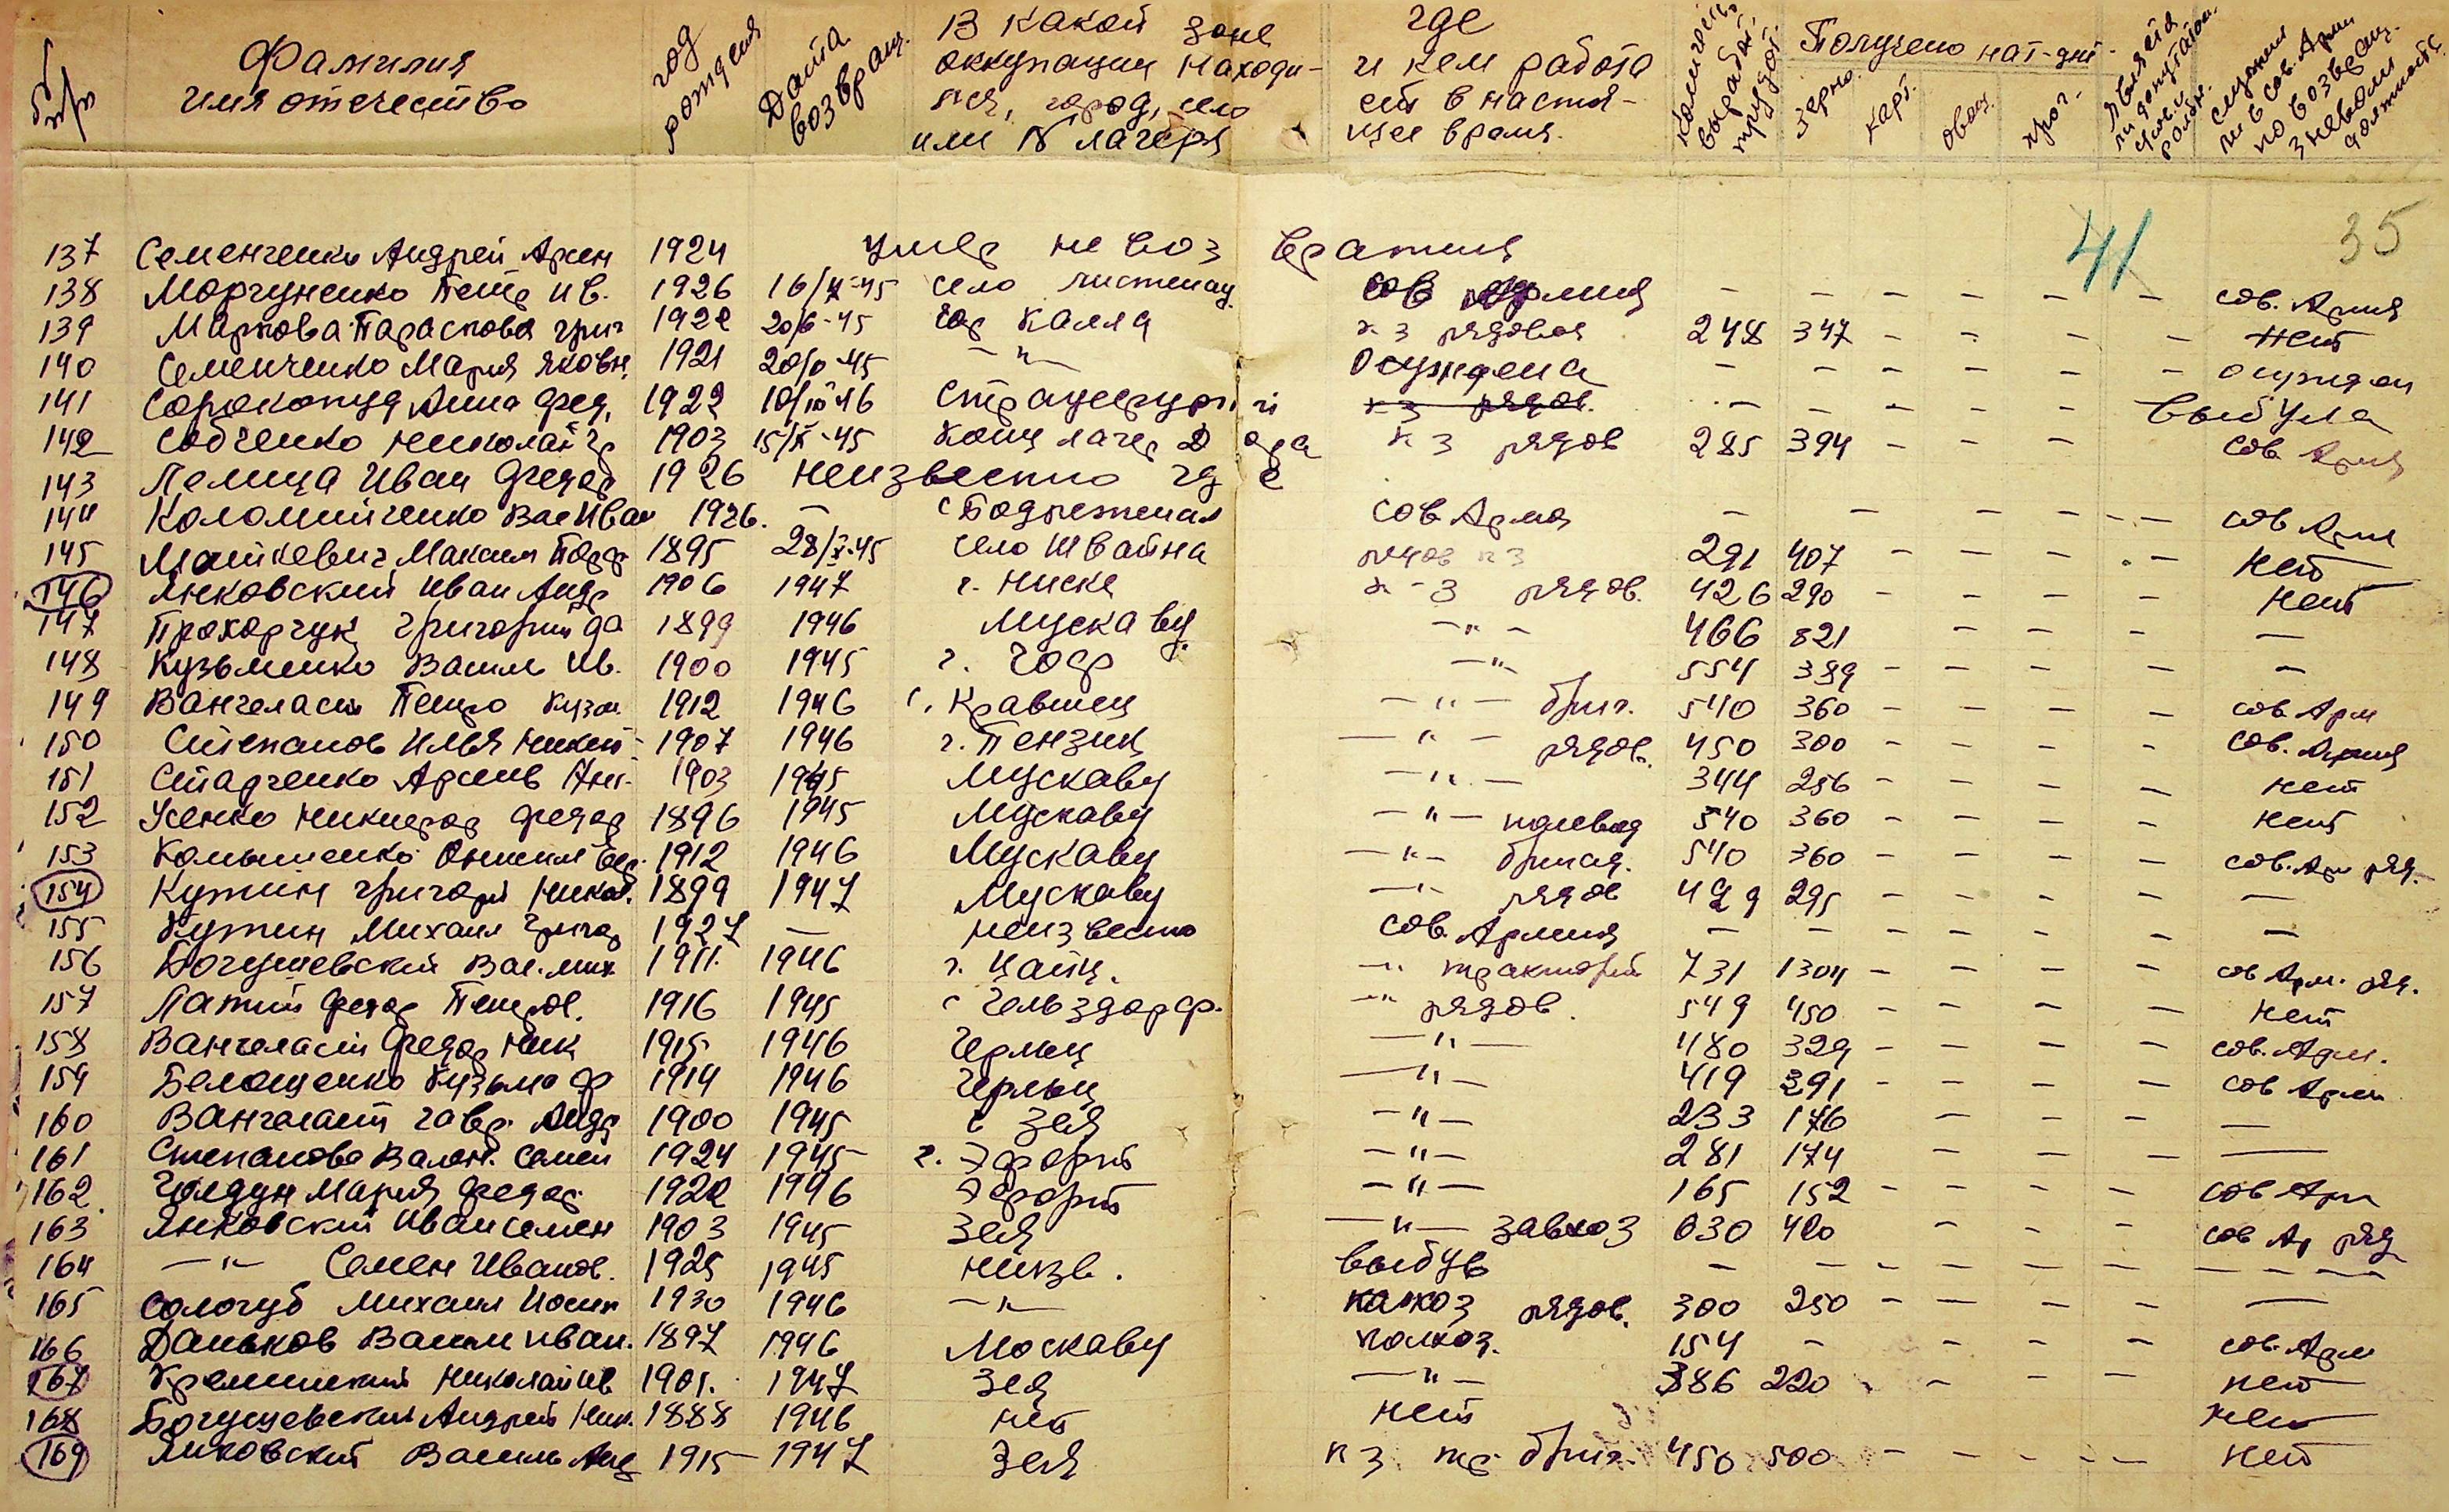 № п/р
Фамилия
имя отечество
год рождения
Дата возвращ.
В какой зоне
оккупации находи-
лся, город, село
или № лагеря
где
и кем работа
ет в настоя-
щее время.
Количест. выработ. трудод.
Получено на т-дни
зерно. карт. овощ. проч.
служил ли в сов. Арми по возвращ.
41 35
137 Семенченко Андрей Арсен 1924 умер не воз вратился
138 Моргуненко Петр ив. 1926 16/X-45 село сов Армия - - - - - - сов. Армия
139 Маркова Парасковья григ 1922 20/6-45 гор Калля к з рядовая 248 347 - - - - нет
140 Семенченко Мария яковн. 1921 20/0-45 -"- Осуждена - - - - - - осужден
141 Сорокопуд Анна фед. 1922 10/III-46 к з рядов. - - - - - - выбула
142 Собченко Николай гр 1903 15/X-45 Конц лагер Д ора к з рядов 285 394 - - - сов. Армия
143 Лемица Иван Федор 1926 неизвестно гд е
144 Коломийченко Вас Иван 1926. - сов Армя - - - - - - сов Арм
145 Машкевич Максим 1895 28/X-45 село Швайна рядов к з 291 407 - - - - нет
146 Янковский Иван Андр 1906 1947 г. Ниске к-з рядов. 426 290 - - - - нет
147 Прохорчук Григорий да 1899 1946 Мускаву -"- 466 821 - - - -
148 Кузьменко Васил Ив. 1900 1945 г. -"- 554 389 - - - - -
149 Вангеласт Петро Кузм. 1912 1946 с. Кравшец -"- бриг. 540 360 - - - - сов Арм
150 Степанов Илья Никит 1907 1946 г. Пензиц -"- рядов. 450 300 - - - - сов. Армия
151 Старченко Арсень 1903 1945 Мускаву -"- 344 256 - - - - нет
152 Усенко Никифор Федор 1896 1945 Мускаву -"- полевод 540 360 - - - - нет
153 1912 1946 Мускаву -"- бригад. 540 360 - - - - сов. Ар ряд.
154 Кутин Григорий Никол. 1899 1947 Мускаву -"- рядов 429 295 - - - - -
155 Кутин Михаил Григор 1927 - неизвестно сов. Армия - - - - - - -
156 Богушевский Вас. мих 1911 1946 г. Цайц. -"- 731 1304 - - - - сов Арм. ряд.
157 Латий Федор Петров. 1916 1945 с Гельздорф. -"- рядов. 549 450 - - - - нет
158 Вангеласт Федор Ник 1915 1946 Герлиц -"- 480 329 - - - - сов. Арм.
159 Белощенко Кузьма Ф 1914 1946 Герлиц -"- 419 391 - - - - сов Арм
160 Вангеласт Гавр. Андр 1900 1945 г Зея -"- 233 176 - - - -
161 Степанова Вален. Семен 1924 1945 г. Эфорт -"- 281 174 - - - -
162 Голдун Мария Федор. 1922 1946 Эфорт -"- 165 152 - - - - сов Арм
163 Янковский Иван семен 1903 1945 Зея -"- завхоз 630 420 - - - сов Ар ряд
164 -"- Семен Иванов. 1925 1945 неизв. выбув - - - - - - - - - -
165 Сологуб Михаил Иосип 1930 1946 -"- колхоз рядов. 300 250 - - - - -
166 Даньков Васил иван. 1897 1946 Москаву колхоз. 154 - - - - - сов. Арм
167 Кременский Николай ив 1901. 1947 Зея -"- 386 220 - - - - нет
168 Богушевский Андрей Ник. 1888 1946 нет нет нет
169 Янковский Василь Анд 1915 1947 Зея к з тр бриг. 450 500 - - - - нет